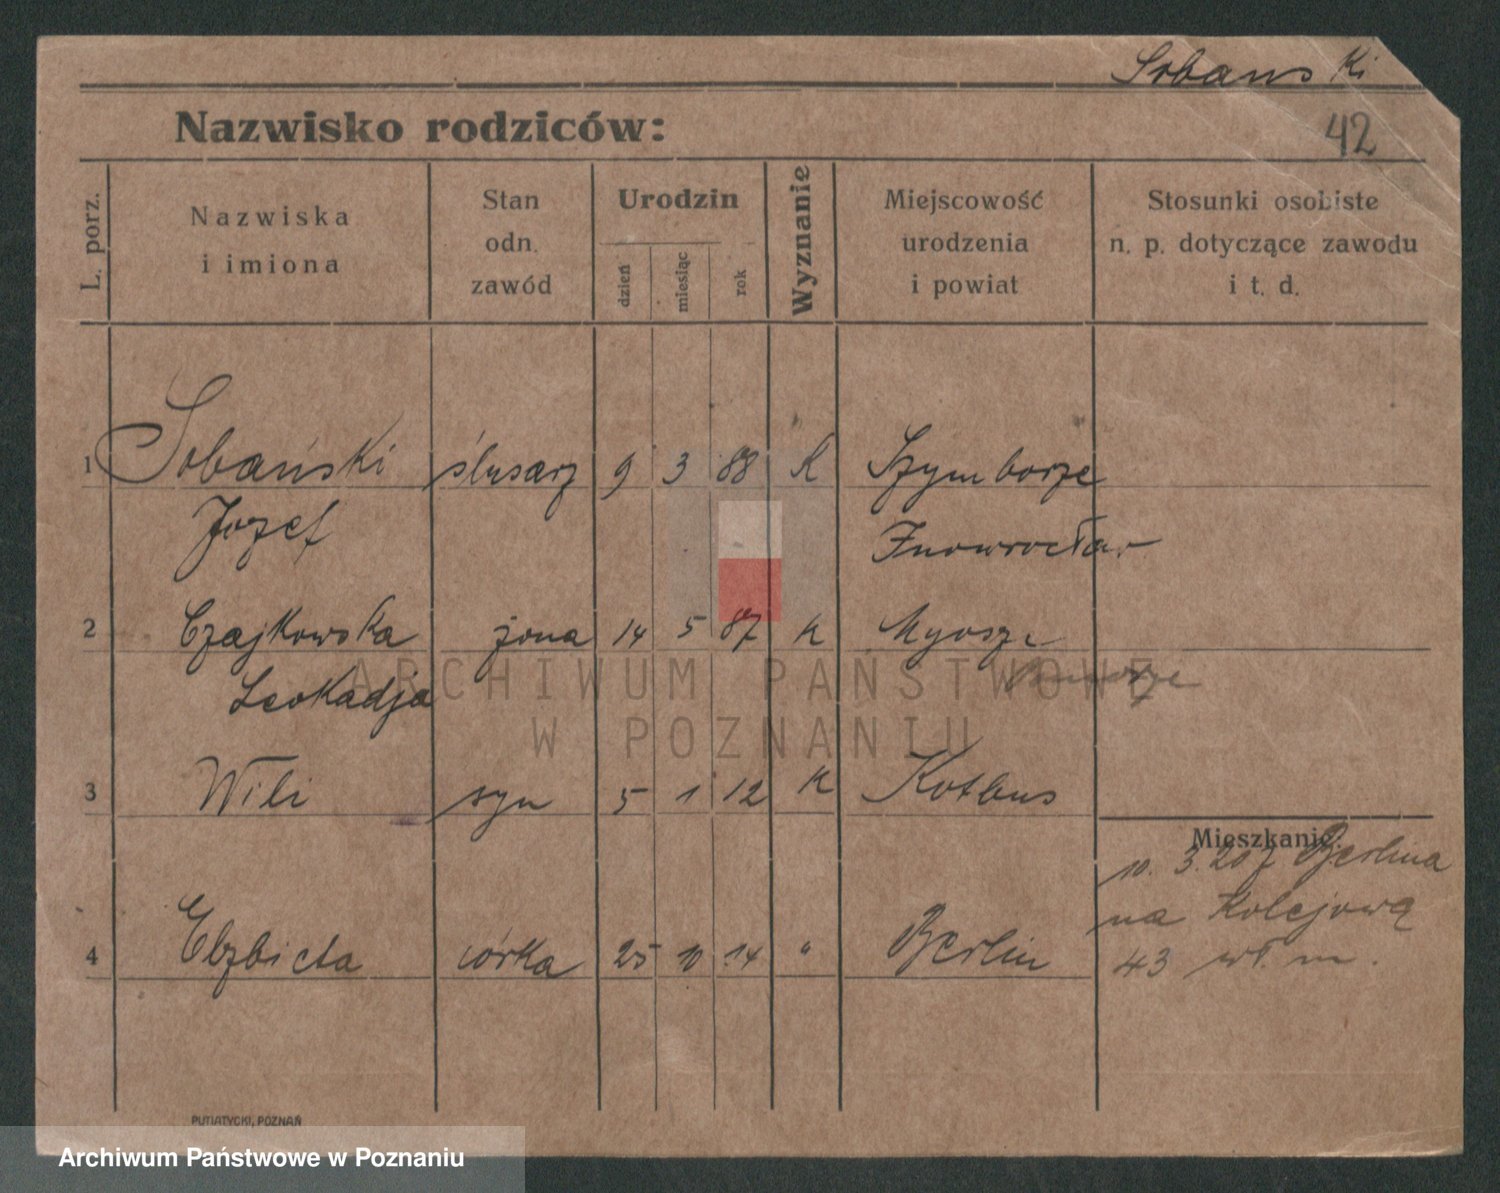 Sobanski
Nazwisko rodziców:
42
L. porz.
Nazwiska
i imiona
Stan
odn.
zawód
Urodzin
dzień
miesiąc
rok
Wyznanie
Miejscowość
urodzenia
i powiat
Stosunki osobiste
n. p. dotyczące zawodu
i t. d.
1 Sobański ślusarz 9 3 88 K Szymborze
Jozef Inowrocław
2 Czajkowska żona 14 5 87 K
Leokadja
3 Wili syn 5 1 12 K Kotbus
Mieszkanie.
10. 3. 20 z Berlina
na Kolejową
43 wł. m.
4 Elzbieta córka 25 10 14 " Berlin
PUTIATYCKI, POZNAŃ
ARCHIWUM PAŃSTWOWE
W POZNANIU
Archiwum Państwowe w Poznaniu